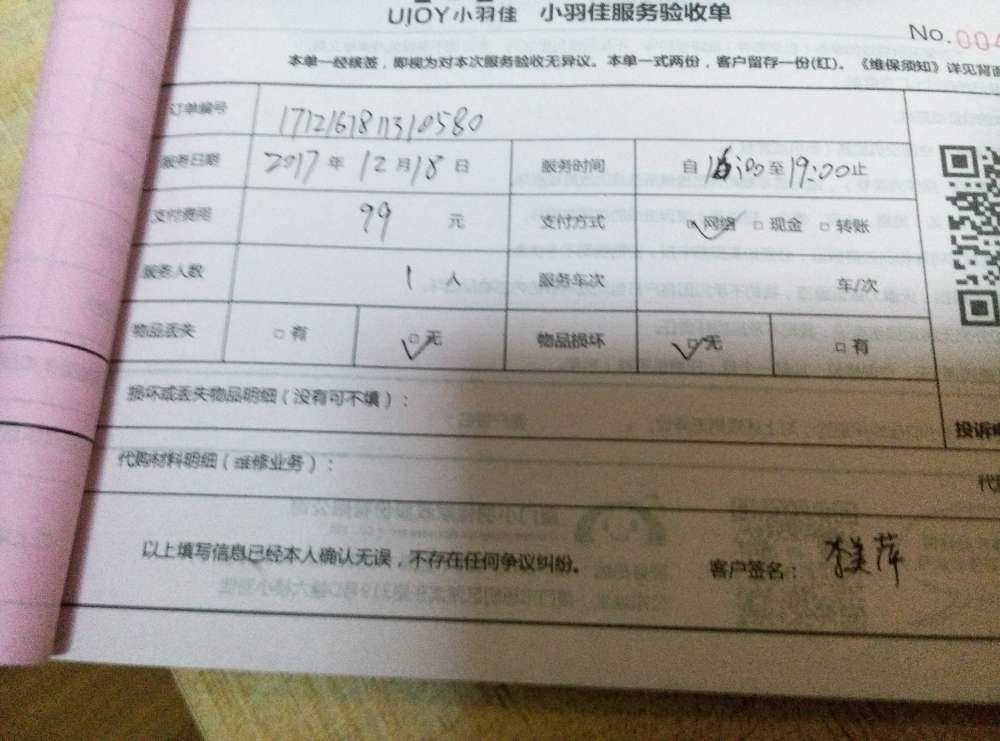 UJOY小羽佳 小羽佳服务验收单
No. 004
本单一经核签，即视为对本次服务验收无异议。本单一式两份，客户留存一份(红)。《维保须知》详见背面
订单编号 1712161811310580
服务日期 2017 年 12 月 18 日 服务时间 自 16:00 至 19:00 止
支付费用 99 元 支付方式 □ 网络 □ 现金 □ 转账
服务人数 1 人 服务车次 车/次
物品丢失 □ 有 □ 无 物品损坏 □ 无 □ 有
损坏或丢失物品明细（没有可不填）：
投诉电
代购材料明细（维修业务）：
代
以上填写信息已经本人确认无误，不存在任何争议纠纷。 客户签名： 李美萍